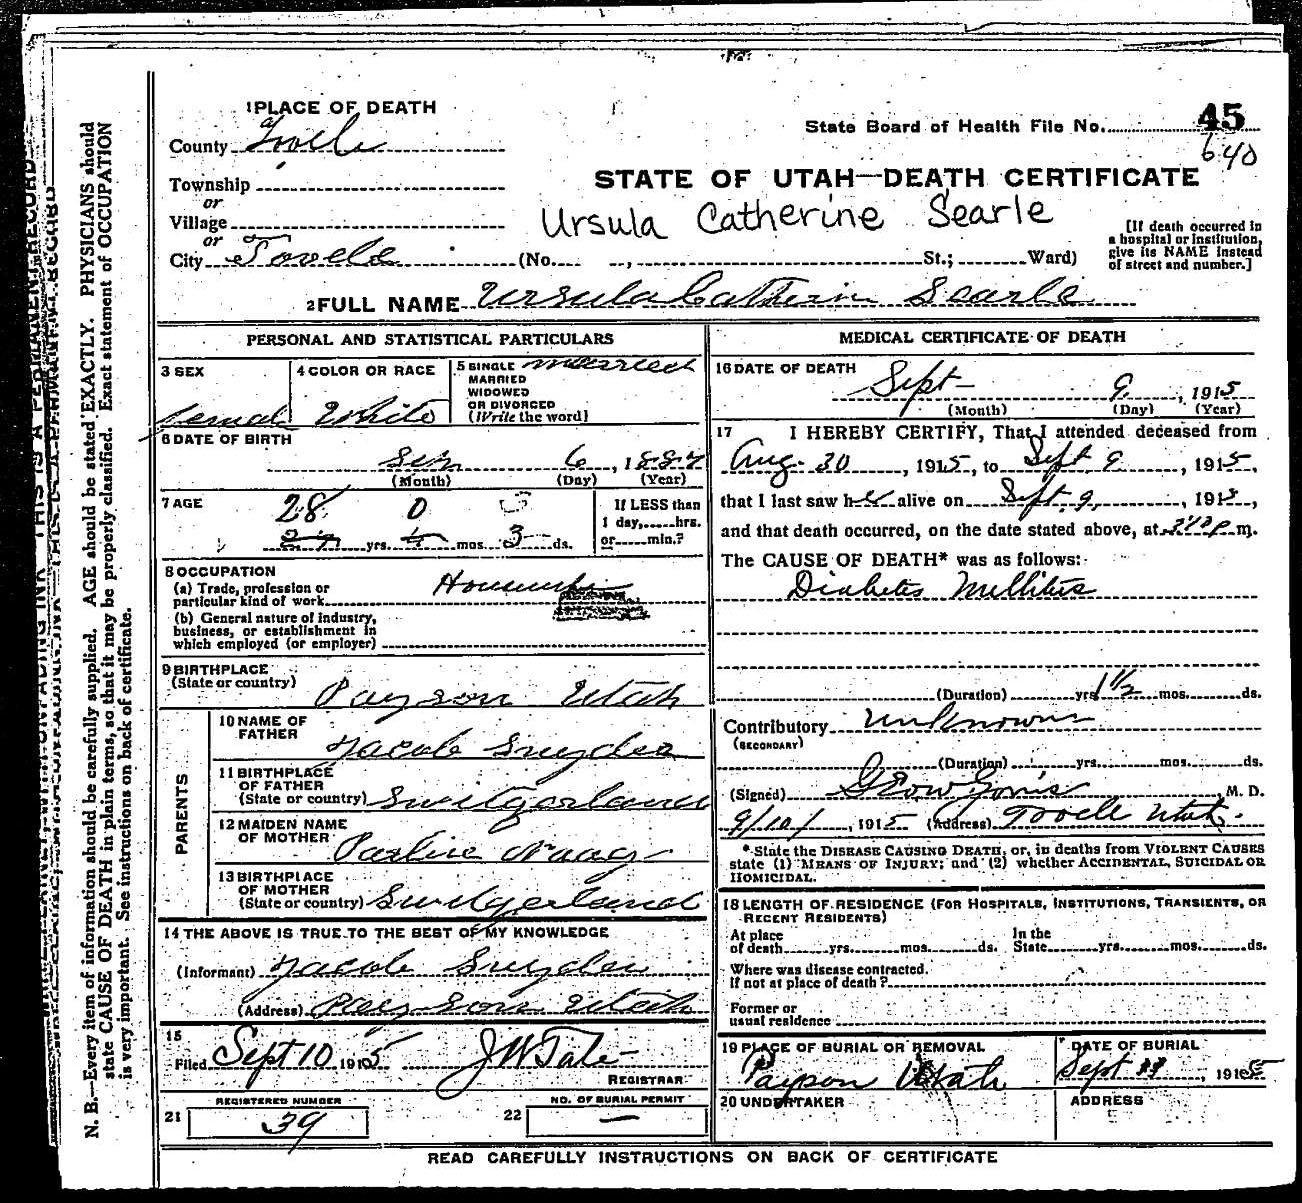 1 PLACE OF DEATH
County Tooele
State Board of Health File No. 45
640
Township
or
Village
or
City Tooele (No. St.; Ward)
STATE OF UTAH—DEATH CERTIFICATE
Ursula Catherine Searle
[If death occurred in
a hospital or institution,
give its NAME instead
of street and number.]
2 FULL NAME Ursula Catherin Searle
PERSONAL AND STATISTICAL PARTICULARS
3 SEX
Female
4 COLOR OR RACE
White
5 SINGLE
MARRIED
WIDOWED
OR DIVORCED
(Write the word)
Married
6 DATE OF BIRTH
6, 1887
(Month) (Day) (Year)
7 AGE
28 0 3
yrs. mos. 3 ds.
If LESS than
1 day,......hrs.
or......min.?
8 OCCUPATION
(a) Trade, profession or
particular kind of work
(b) General nature of industry,
business, or establishment in
which employed (or employer)
9 BIRTHPLACE
(State or country) Payson Utah
PARENTS
10 NAME OF
FATHER Jacob Snyder
11 BIRTHPLACE
OF FATHER
(State or country) Switzerland
12 MAIDEN NAME
OF MOTHER
13 BIRTHPLACE
OF MOTHER
(State or country) Switzerland
14 THE ABOVE IS TRUE TO THE BEST OF MY KNOWLEDGE
(Informant) Jacob Snyder
(Address) Payson Utah
15
Filed Sept 10 1915 J W Tate
REGISTRAR
21 REGISTERED NUMBER
39
22 NO. OF BURIAL PERMIT
—
MEDICAL CERTIFICATE OF DEATH
16 DATE OF DEATH
Sept 9, 1915
(Month) (Day) (Year)
17 I HEREBY CERTIFY, That I attended deceased from
Aug. 30, 1915, to Sept 9, 1915,
that I last saw her alive on Sept. 9, 1915,
and that death occurred, on the date stated above, at m.
The CAUSE OF DEATH* was as follows:
Diabetes Mellitus
(Duration) yrs 1 1/2 mos. ds.
Contributory Unknown
(SECONDARY)
(Duration) yrs. mos. ds.
(Signed) M. D.
9/10/, 1915 (Address) Tooele Utah.
*State the DISEASE CAUSING DEATH, or, in deaths from VIOLENT CAUSES
state (1) MEANS OF INJURY; and (2) whether ACCIDENTAL, SUICIDAL OR
HOMICIDAL.
18 LENGTH OF RESIDENCE (FOR HOSPITALS, INSTITUTIONS, TRANSIENTS, OR
RECENT RESIDENTS)
At place
of death yrs. mos. ds.
In the
State yrs. mos. ds.
Where was disease contracted.
If not at place of death?
Former or
usual residence
19 PLACE OF BURIAL OR REMOVAL
Payson Utah
DATE OF BURIAL
Sept 11, 1915
20 UNDERTAKER
ADDRESS
READ CAREFULLY INSTRUCTIONS ON BACK OF CERTIFICATE
N. B.—Every item of information should be carefully supplied. AGE should be stated EXACTLY. PHYSICIANS should
state CAUSE OF DEATH in plain terms, so that it may be properly classified. Exact statement of OCCUPATION
is very important. See instructions on back of certificate.